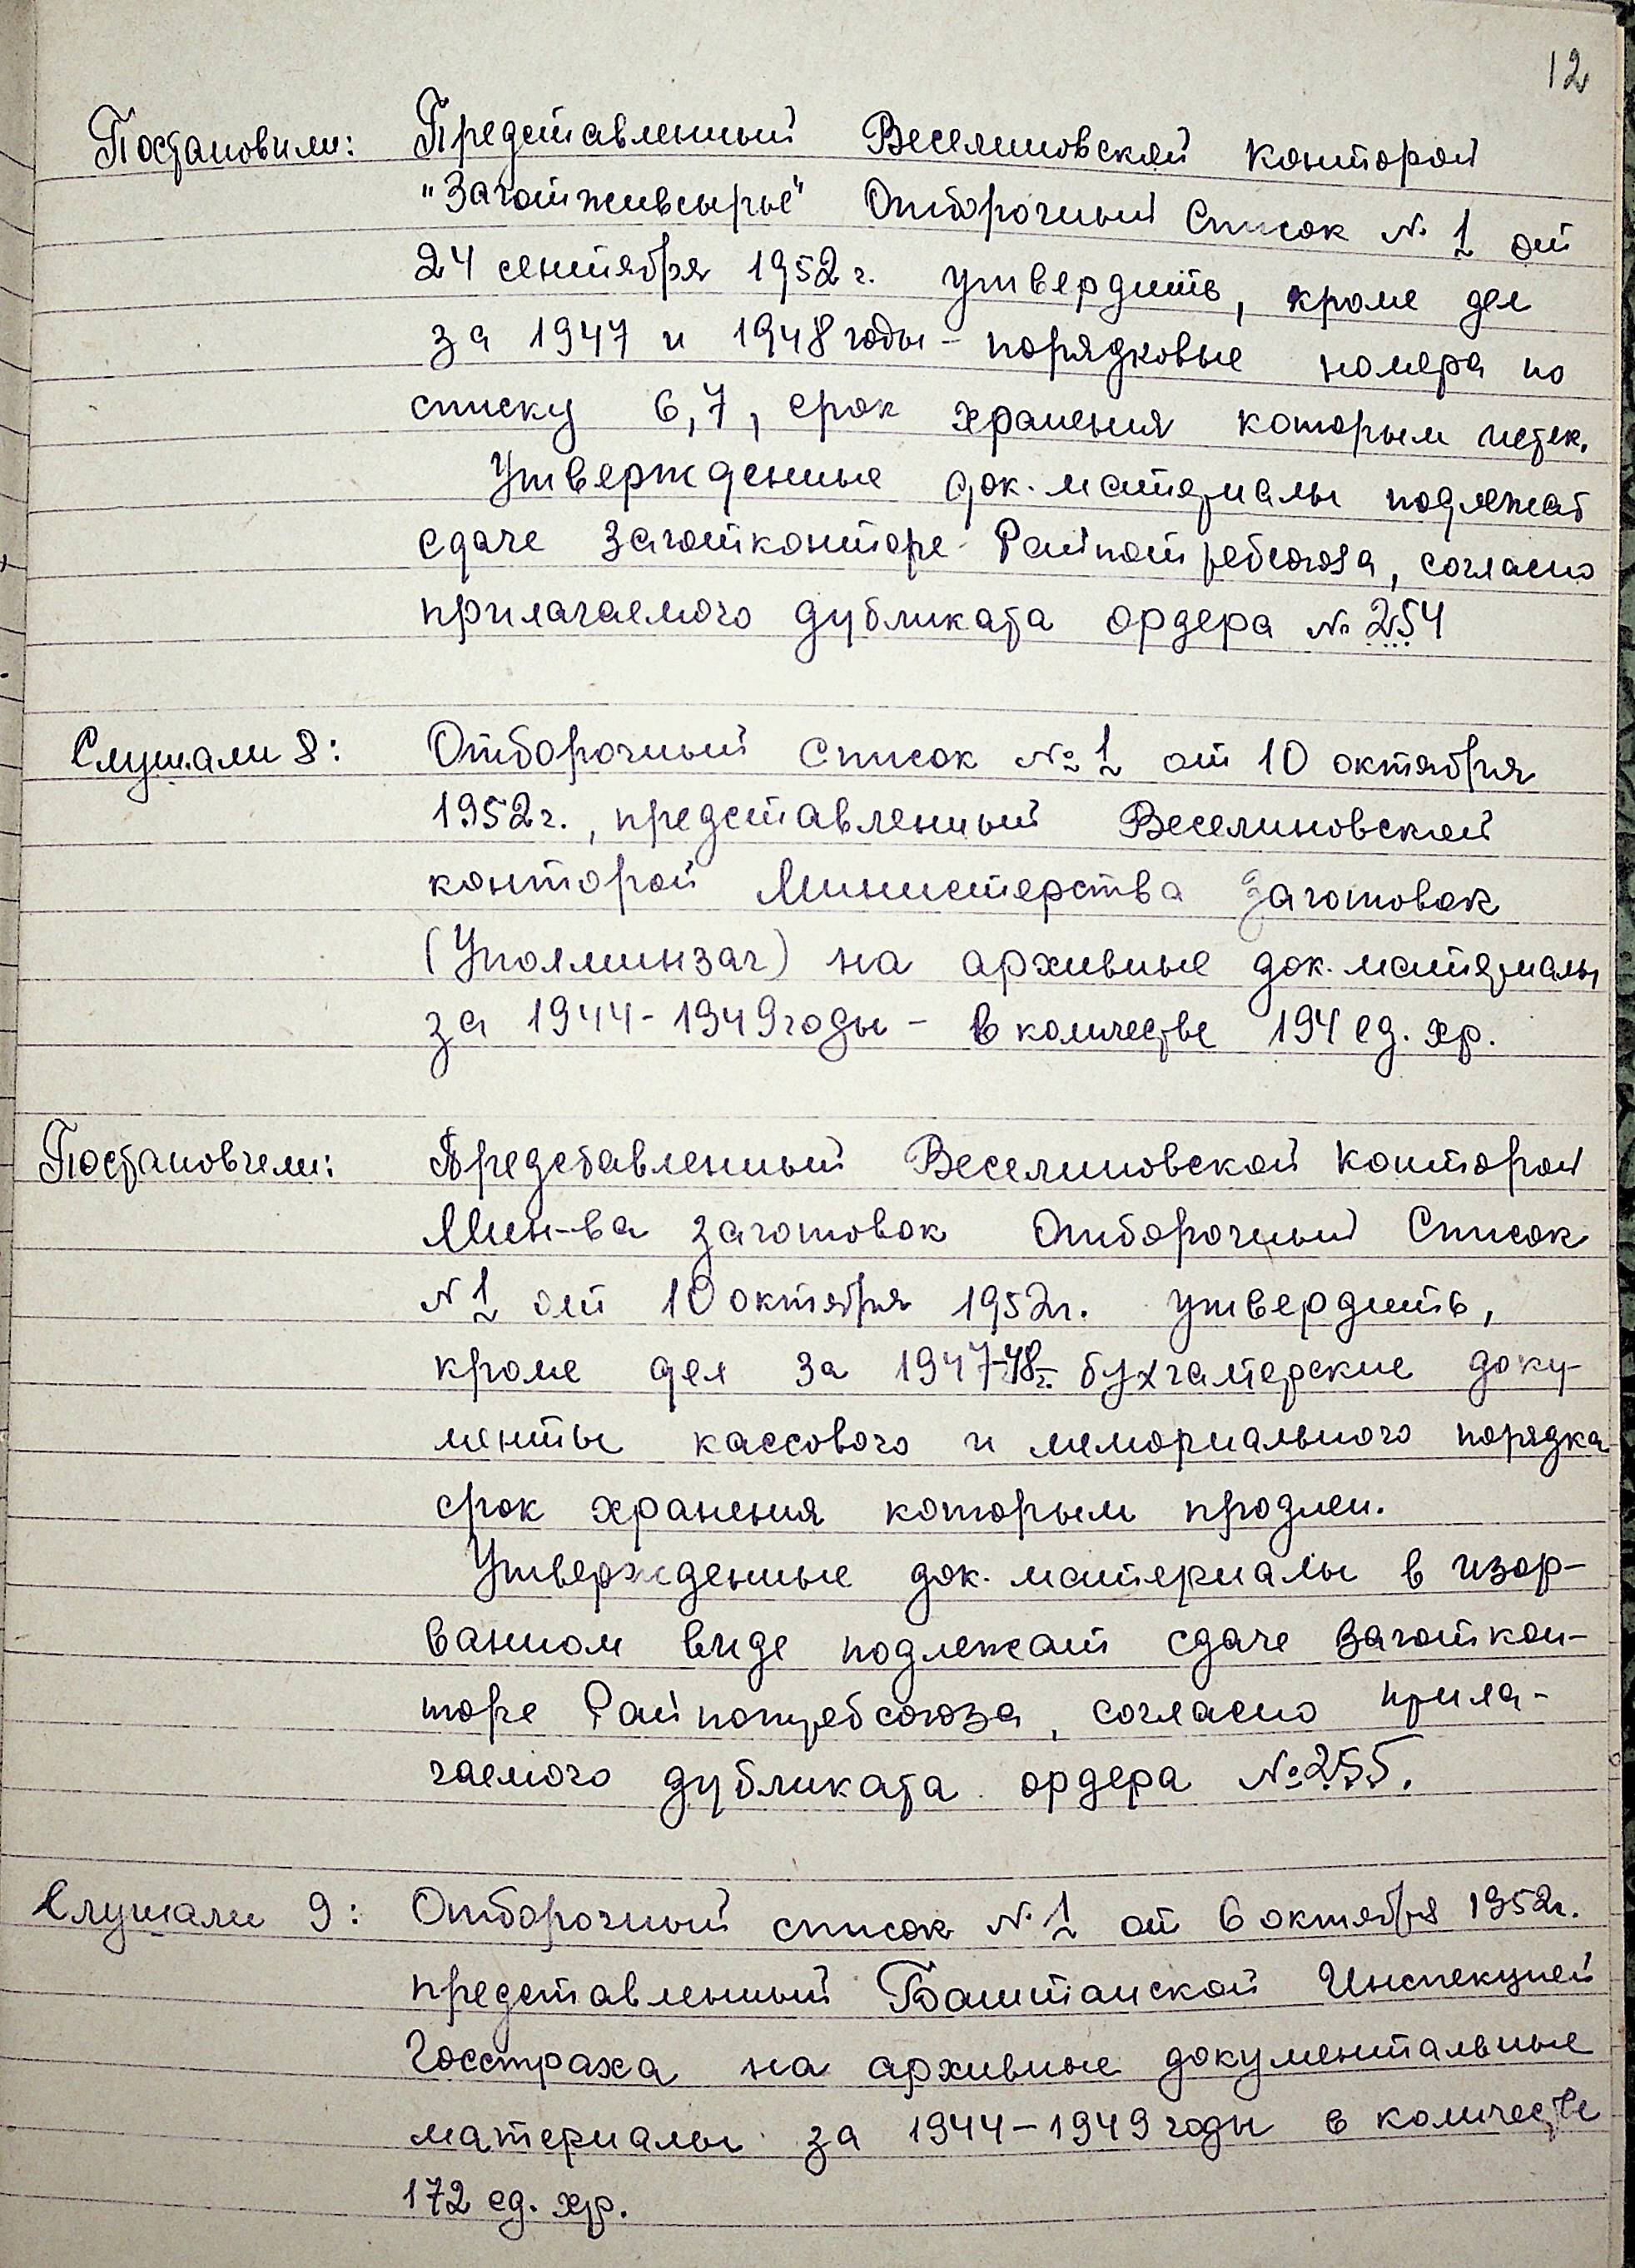 12
Постановили: Представленный Веселиновской конторой
"Заготживсырье" Отборочный Список № 1 от
24 сентября 1952 г. утвердить, кроме дел
за 1947 и 1948 годы - порядковые номера по
списку 6,7, срок хранения которым истек.
Утвержденные док. материалы подлежат
сдаче Заготконторе Райпотребсоюза, согласно
прилагаемого дубликата ордера № 254
Слушали 8: Отборочный Список № 1 от 10 октября
1952 г., представленный Веселиновской
конторой Министерства Заготовок
(Уполминзаг) на архивные док. материалы
за 1944-1949 годы - в количестве 194 ед. хр.
Постановили: Представленный Веселиновской конторой
Мин-ва заготовок Отборочный Список
№ 1 от 10 октября 1952 г. утвердить,
кроме дел за 1947-48 г. бухгалтерские доку-
менты кассового и мемориального порядка
срок хранения которым продлен.
Утвержденные док. материалы в изор-
ванном виде подлежат сдаче Заготкон-
торе Райпотребсоюза, согласно прила-
гаемого дубликата ордера № 255.
Слушали 9: Отборочный список № 1 от 6 октября 1952 г.
представленный Баштанской Инспекцией
Госстраха на архивные документальные
материалы за 1944-1949 годы в количестве
172 ед. хр.